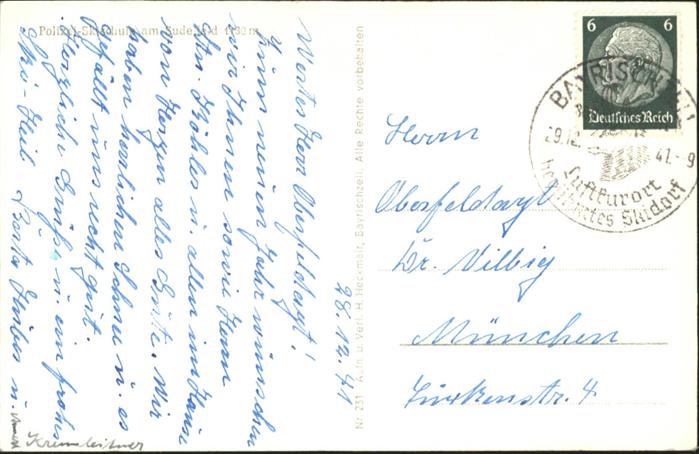 Polizei-Skischule am Sudelfeld 1130 m
28.12.41
Wertes Herr Oberfeldarzt!
Zum neuen Jahr wünschen
wir Ihnen sowie Herrn
u. allen im Hause
von Herzen alles Gute. Wir
haben herrlichen Schnee u. es
gefällt uns recht gut.
Herzliche Grüße u. ein frohes
Ski-Heil
Nr. 231 Aufn. u. Verl. H. Heckmair, Bayrischzell. Alle Rechte vorbehalten
6 6
Deutsches Reich
BAYRISCHZELL
29.12.41.-9
Luftkurort
berühmtes Skidorf
Herrn
Oberfeldarzt
Dr. Vilbig
München
Linkenstr. 4